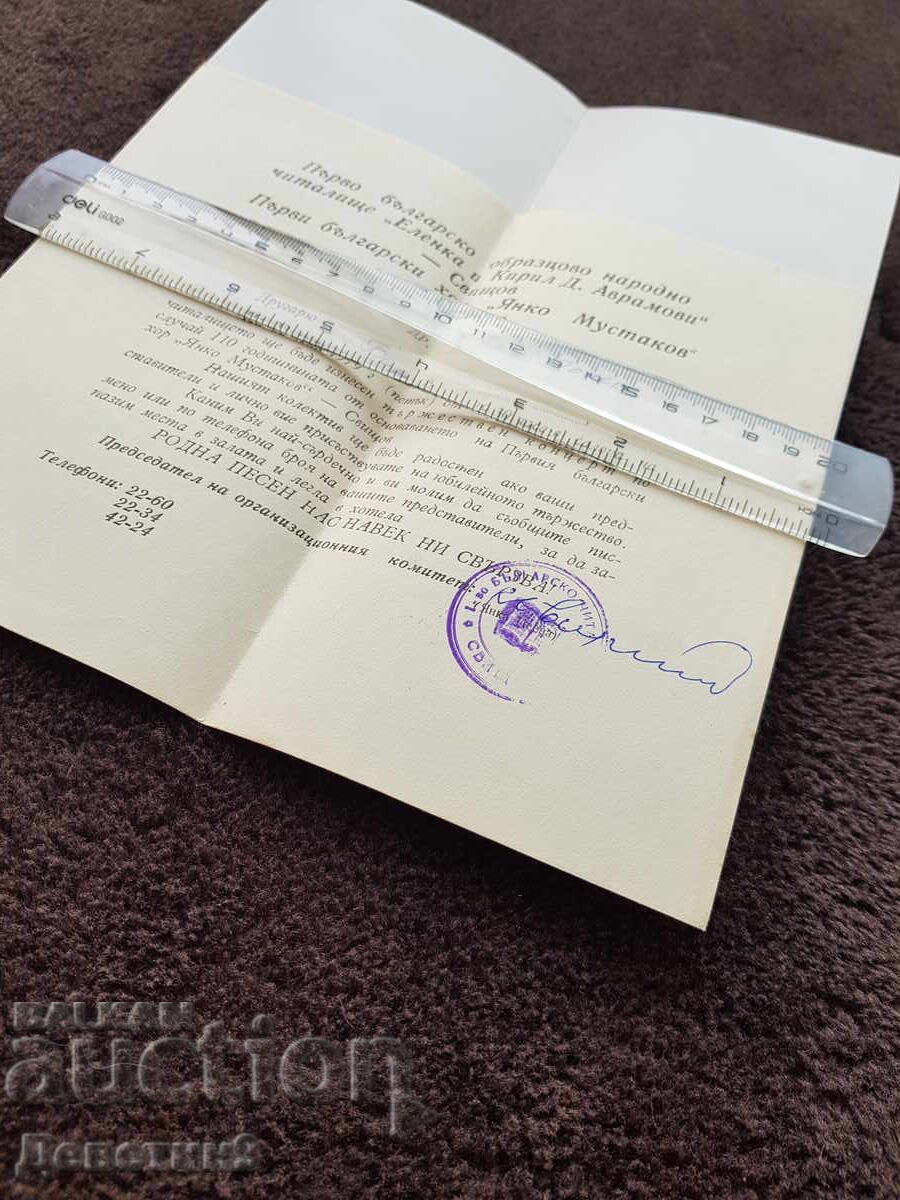 Първо българско образцово народно
читалище „Еленка и Кирил Д. Аврамови“
— Свищов
Първи български хор „Янко Мустаков“
Другарю
читалището ще бъде изнесен тържествен концерт по
случай 110 годишнината от основаването на Първия български
хор „Янко Мустаков“ — Свищов
Нашият колектив ще бъде радостен ако ваши пред-
ставители и лично вие присъствувате на юбилейното тържество.
Каним Ви най-сърдечно и ви молим да съобщите пис-
мено или по телефона броя на вашите представители, за да за-
пазим места в залата и легла в хотела
РОДНА ПЕСЕН НАС НАВЕК НИ СВЪРЗВА!
Председател на организационния комитет:
Телефони: 22-60
22-34
42-24
1-во БЪЛГАРСКО ЧИТ
СВИЩ
deli 6002
0 1 2 3 4 5 6 7 8 9 10 11 12 13 14 15 16 17 18 19 20
8 7 6 5 4 3 2 1 0
BALKAN
auction
Деветки9